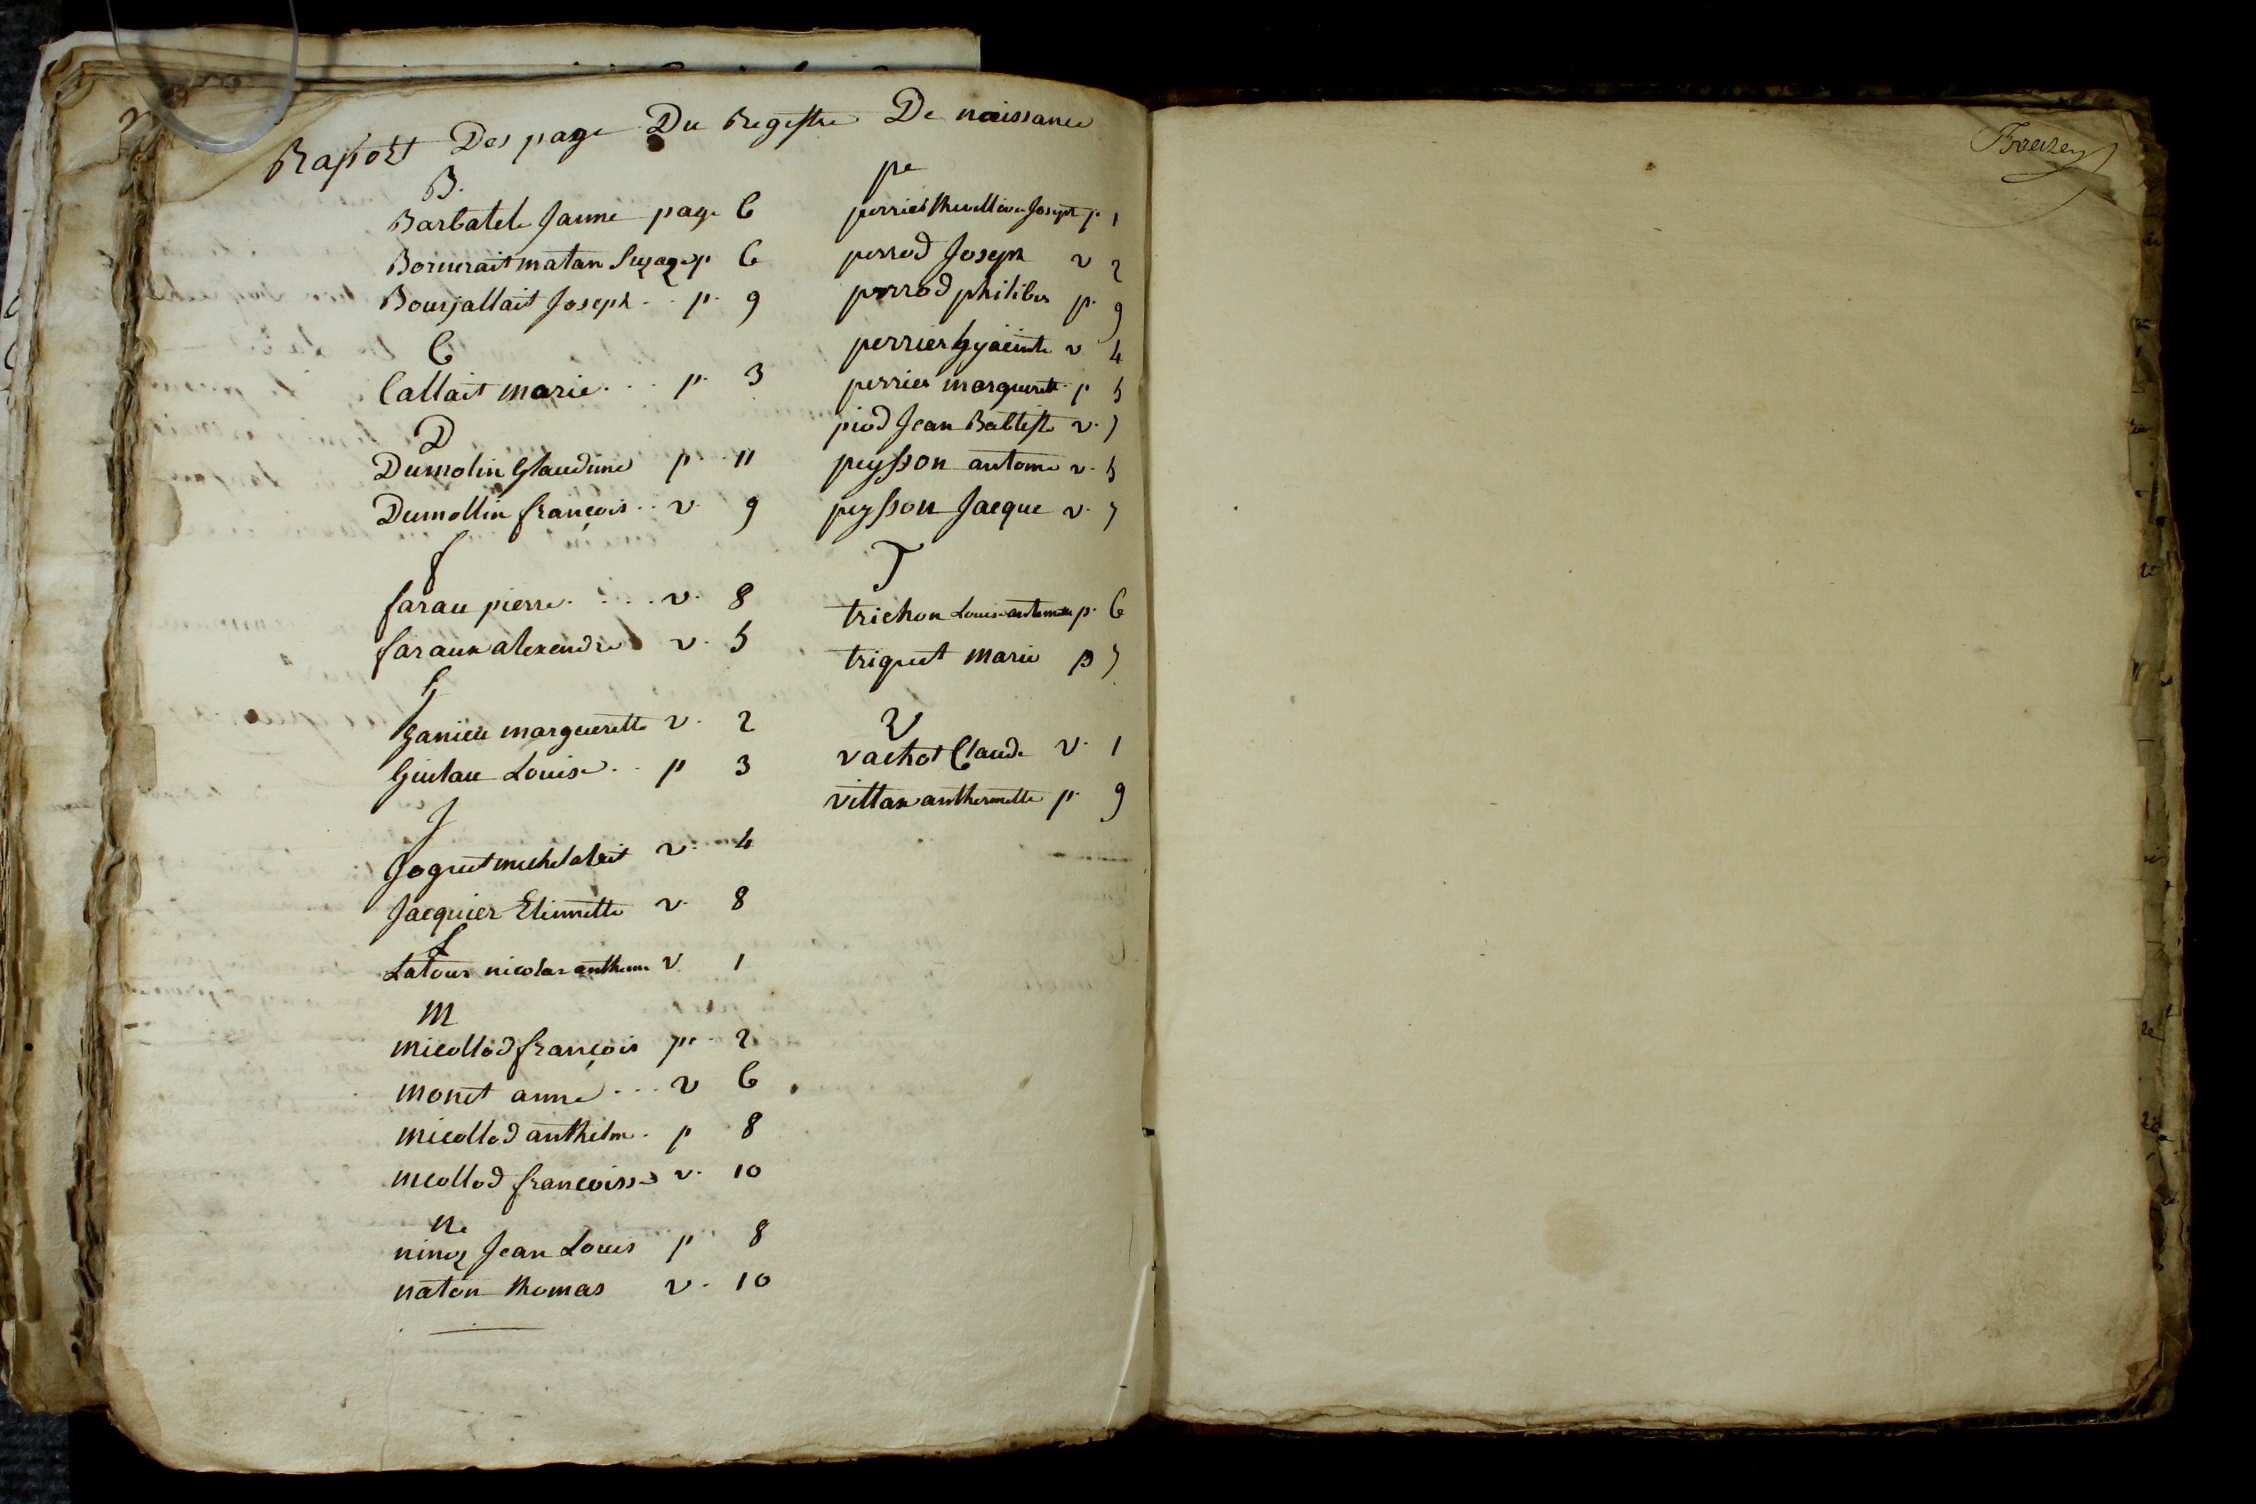 Raport Des page Du Registre De naissance
B.
Barbatele Janne page 6
Bornerait matan p. 6
Bourjallait Joseph . . p. 9
C
Callait marie . . . p. 3
D
Dumolin Glaudine p. 11
Dumollin françois . . v. 9
f
farau pierre . . . . v. 8
faraux alexendre v. 5
G
ganieu marguerette v. 2
Guilau Louise . . p 3
J
Joguet michel v. 4
Jacquier Etiennette v. 8
L
Latour nicolas anthelme v 1
M
micollod françois p. 2
monet anne . . . v 6
micollod anthelm . p 8
micollod françoisse v. 10
ne
ninoz Jean Louis p 8
naton thomas v. 10
pe
perrier Joseph p. 1
perrod Joseph v 2
perrod philiber p. 9
perrier hyacinte v 4
perrier marguerett p 5
piod Jean Babtiste v. 7
peysson antome v. 5
peysson Jacque v. 7
T
trichon Louise p. 6
triquet marie p 7
V
vachot Claude v. 1
vittan anthermette p. 9